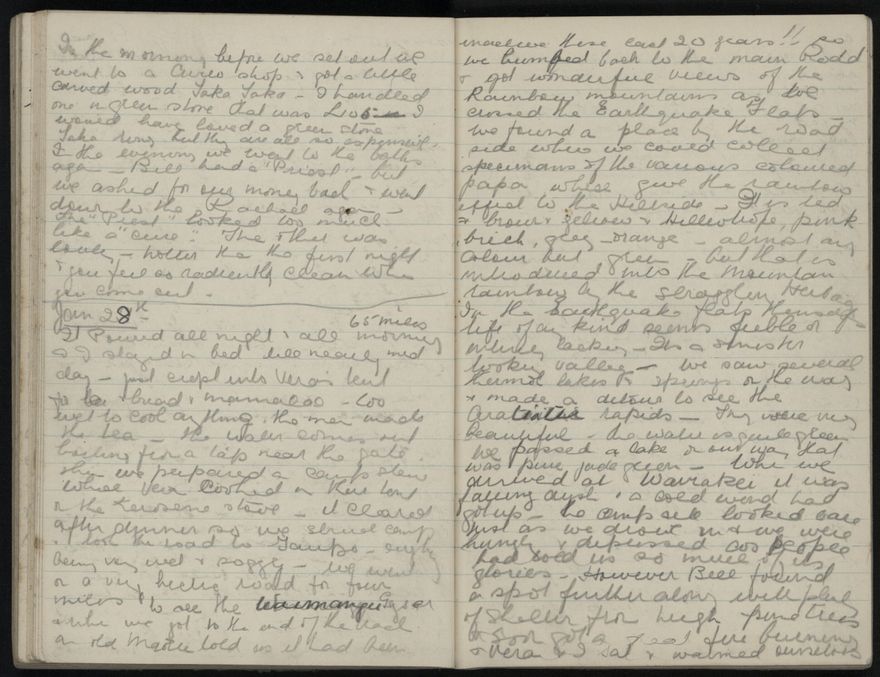 In the morning before we set out we
went to a Curio shop & got a little
carved wood Taka Taka - I handled
one in green stone that was £105 - I
would have loved a green stone
Taka Tiny but they are all so expensive.
In the evening we went to the baths
again - Bill had a "Priest" - but
we asked for our money back & went
down to the Rachael again -
The "Priest" looked too much
like a "cure". The other was
lovely - hotter than the first night
& you feel so radiently clean when
you come out.
Jan 28th 65 miles
It Poured all night & all morning
so I stayed in bed till nearly mid
day - just crept into Vera's tent
for tea & bread & marmalade - too
wet to cool anything. the men made
the tea - the water comes out
boiling from a tap near the gate.
then we prepared a camp stew
while Vera Cooked in their tent
on the kerosene stove - it cleared
after dinner so we struck camp
& took the road to Taupo - everything
being very wet & soggy - We went
on a very hectic road for four
miles to see the Waimangu Geyser
& when we got to the end of the road
an old Maori told us it had been
inactive these last 20 years!! so
we bumped back to the main Rodd
& got wonderful views of the
Rainbow mountains as we
crossed the Earthquake Flats -
we found a place by the road
side where we could collect
specimans of the various coloured
papa which give the rainbow
effect to the Hillside - It is red
& brown & yellow & Helliotrope, pink
brick, grey - orange - almost any
colour but green - but that is
introduced into the mountain
rainbow by the straggling Herbage
In the Earthquake flats though
life of any kind seems feeble or
entirely lacking - Its a sinister
looking valley - we saw several
thermal lakes & springs on the way
& made a detour to see the
Aratiatia rapids - They were very
beautiful - the water is jade green
We passed a lake on our way that
was pure jade green - When we
arrived at Wairakei it was
falling dusk & a cold wind had
got up - the camp site looked bare
just as we drove in & we were
hungry & depressed cos People
had told us so much of its
glories - However Bill found
a spot further along with plenty
of shelter from high pine trees
& soon got a great fire burning
& Vera & I sat & warmed ourselves